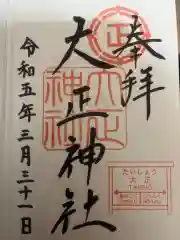 奉拝
大正神社
令和五年三月三十一日
大正
大正
神社
たいしょう
大正
TAISHO